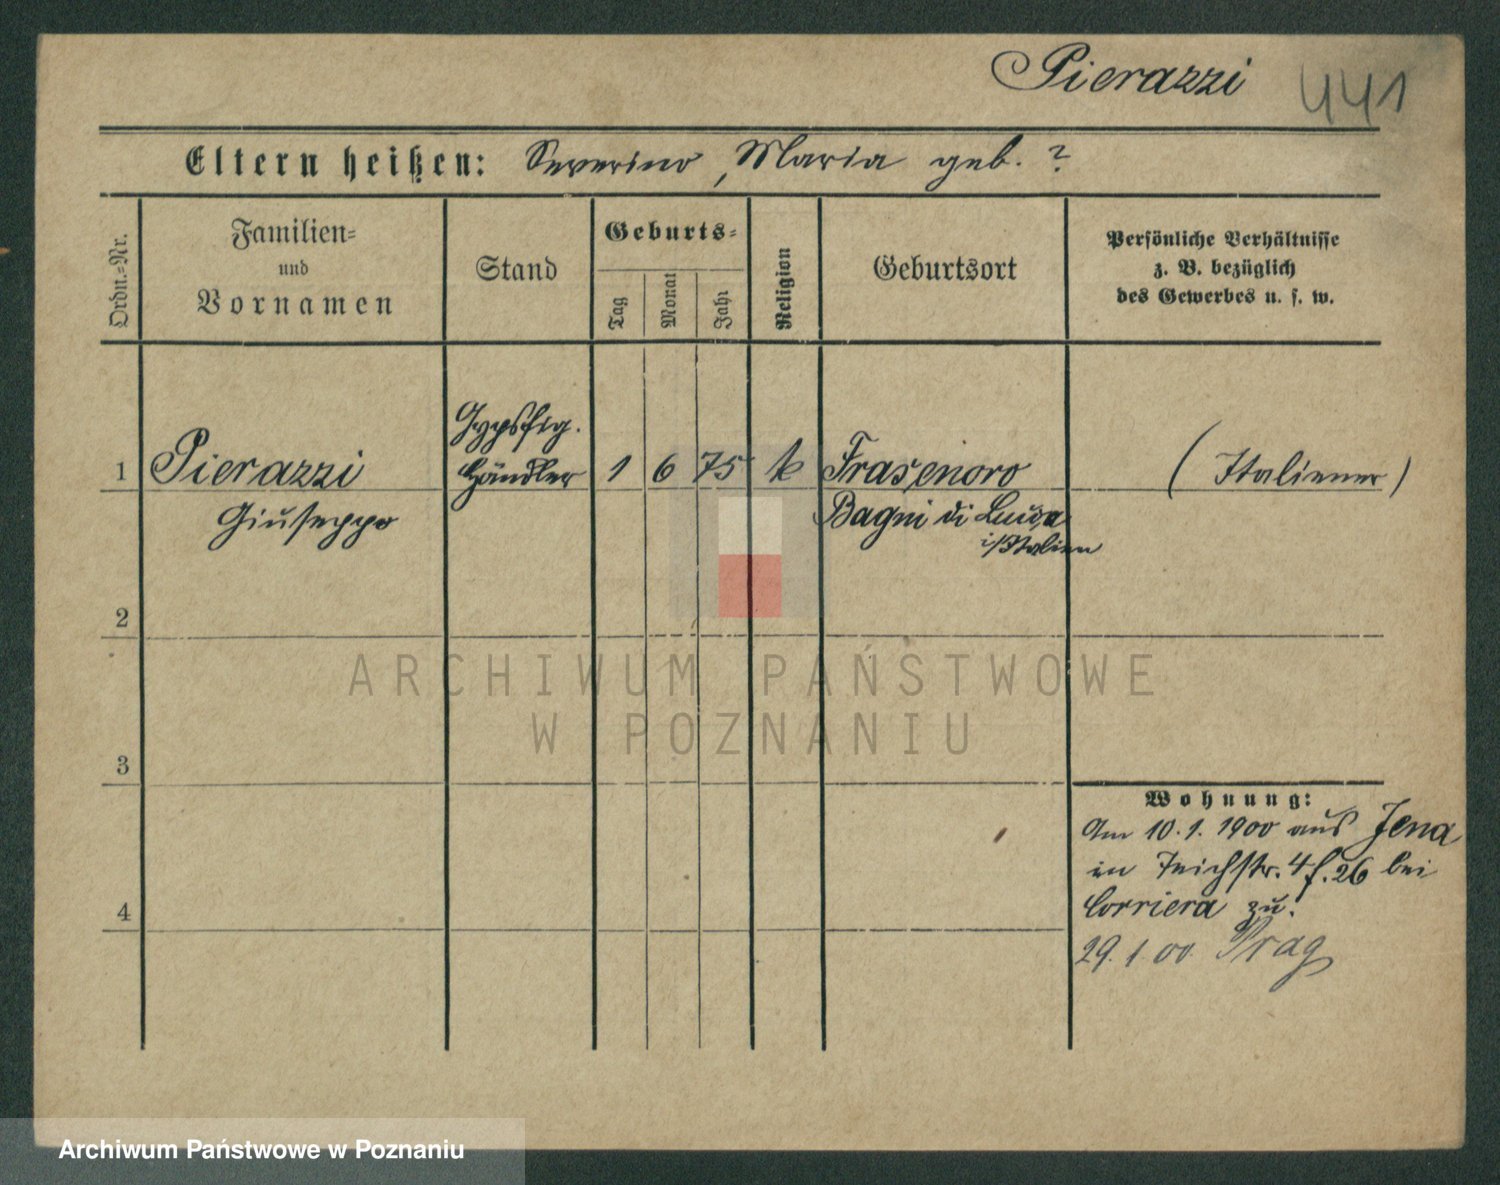 Pierazzi 441
Eltern heißen: Severino, Maria geb. ?
Ordn.=Nr.
Familien=
und
Vornamen
Stand
Geburts=
Tag
Monat
Jahr
Religion
Geburtsort
Persönliche Verhältnisse
z. B. bezüglich
des Gewerbes u. s. w.
Gypsfig.
1 Pierazzi Händler 1 6 75 k Frasenoro (Italiener)
Giuseppo Bagni di Lucca
i/Italien
2
3
4
Wohnung:
Am 10.1.1900 aus Jena
in Teichstr. 4 f. 26 bei
Corriera zu.
29.1 00 Prag
ARCHIWUM PAŃSTWOWE
W POZNANIU
Archiwum Państwowe w Poznaniu